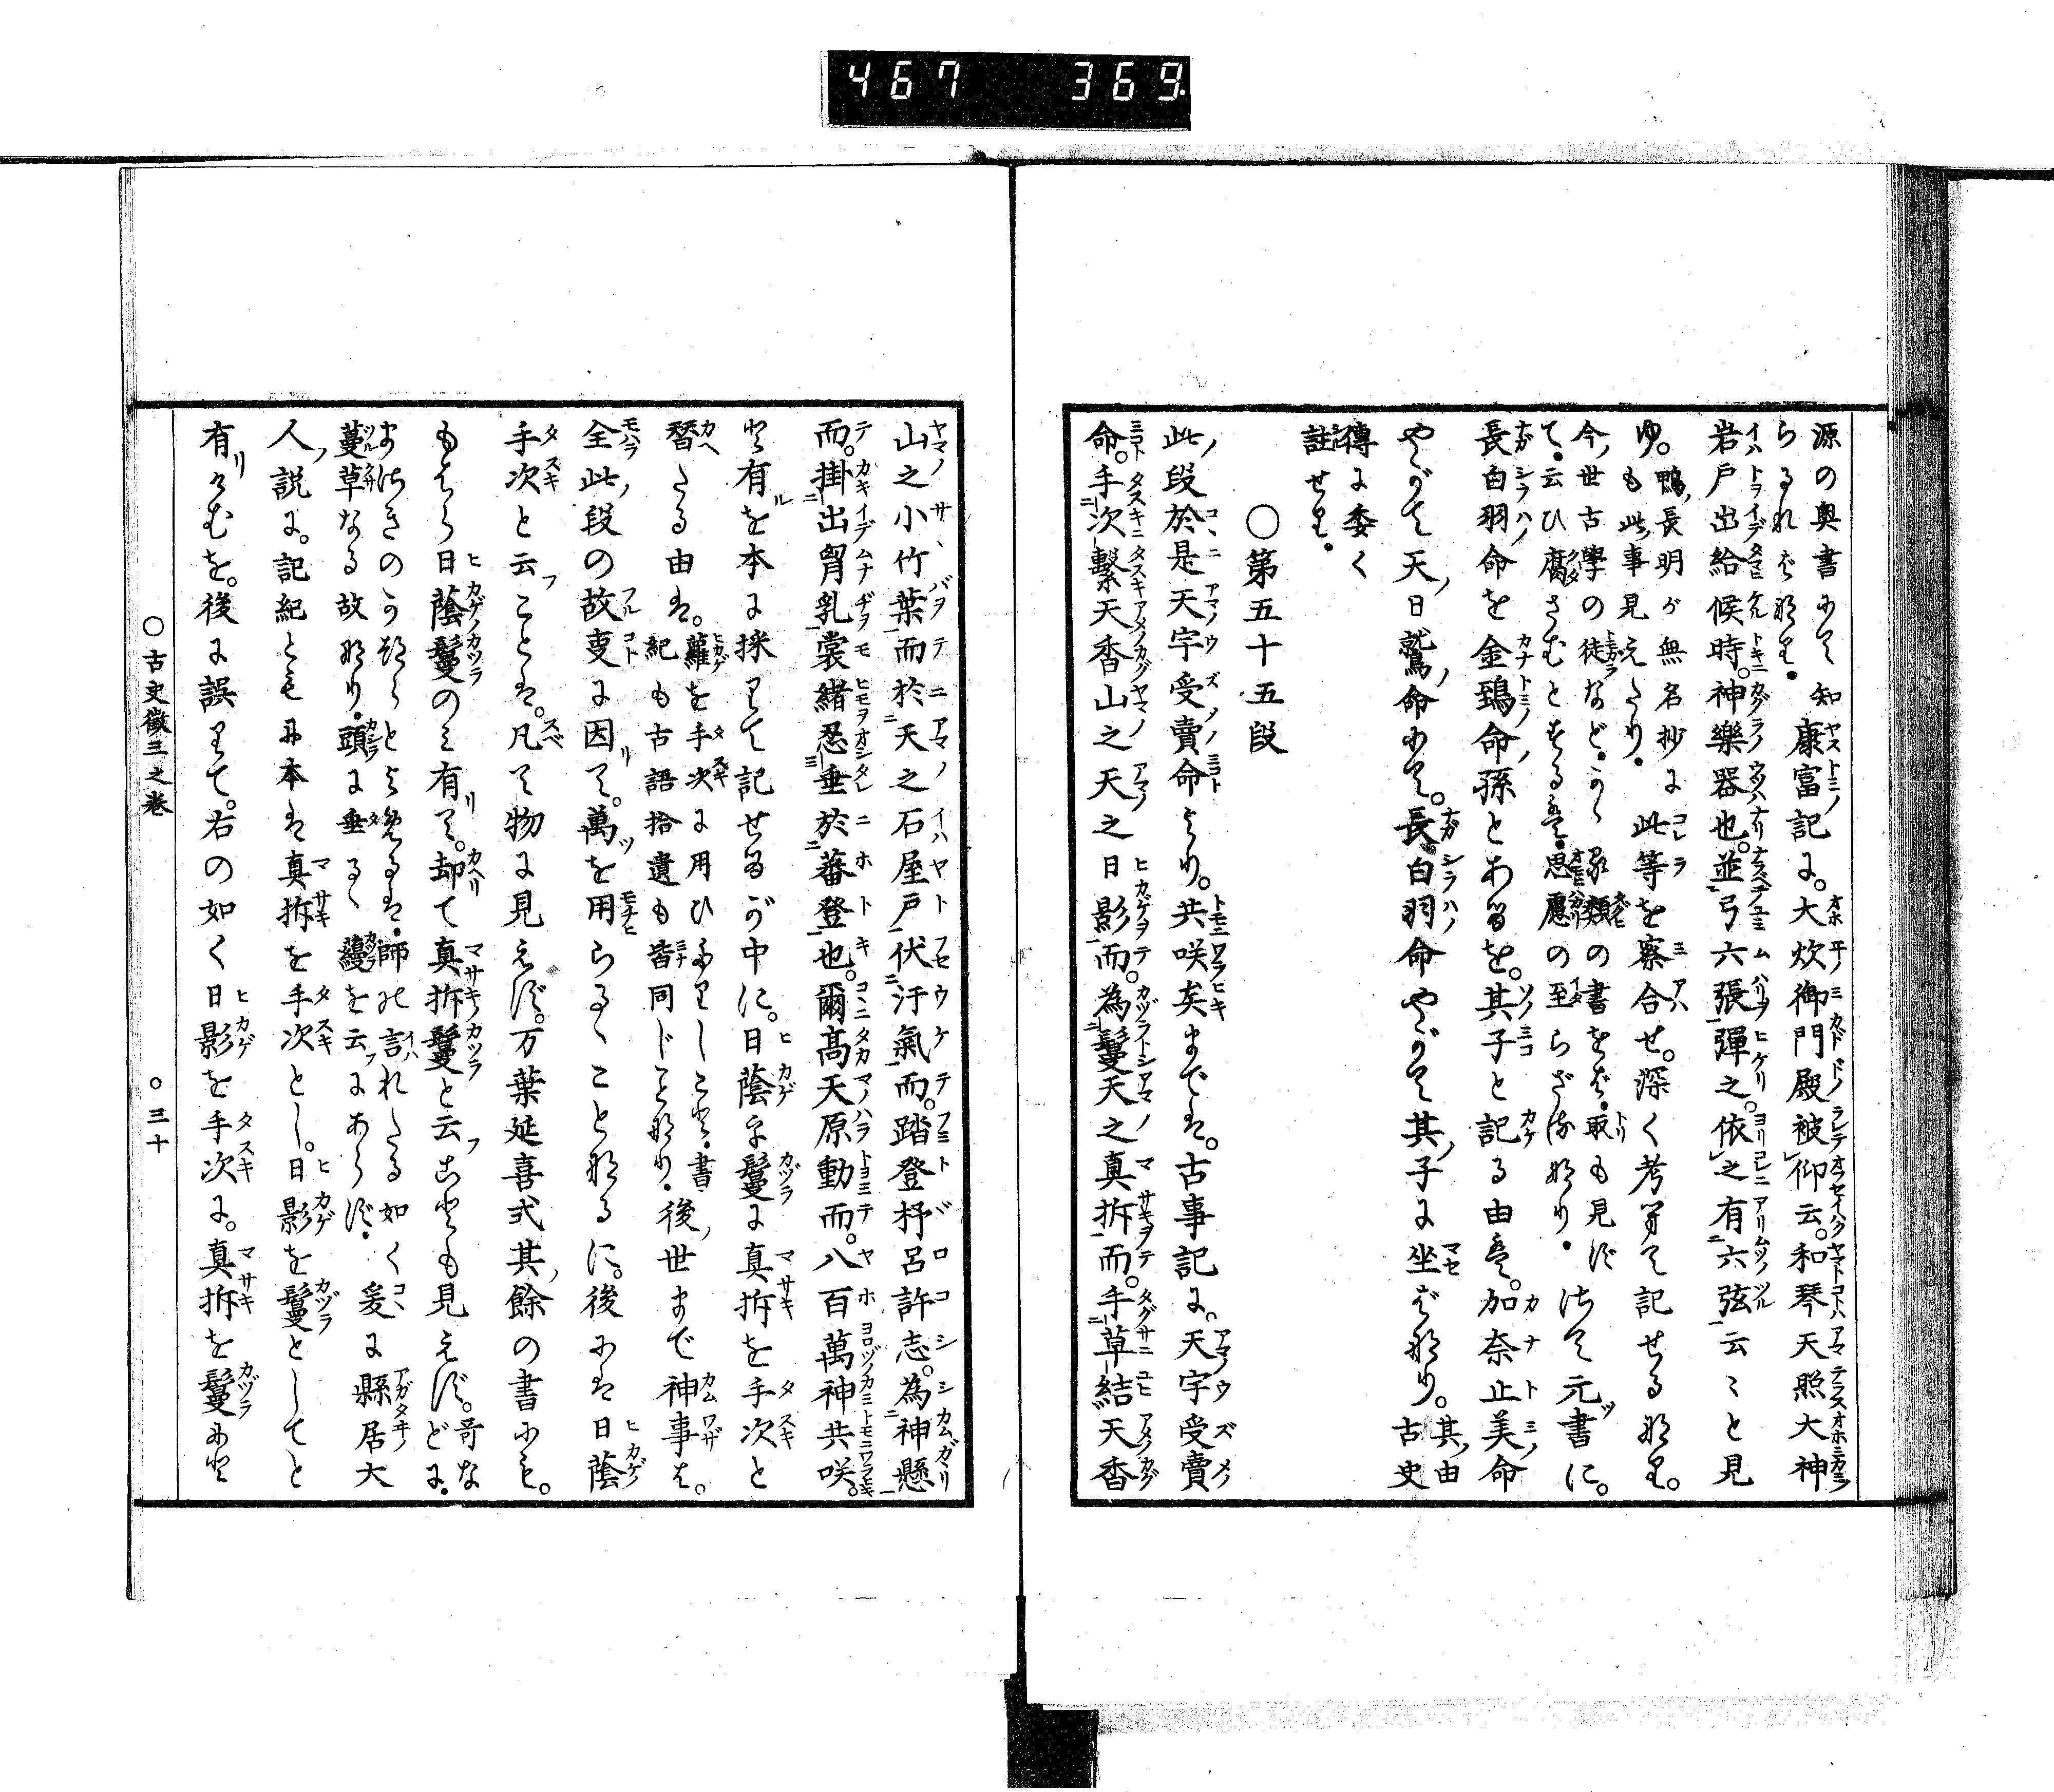 467 369
源の奥書にて知
られたれ
康富記に。大炊御門殿被仰云。和琴天照大神
岩戸出給候時。神樂器也。並弓六張彈之。依之有六弦云々と見
ゆ。鴨長明が無名抄に
も此事見えたり。
此等を察合せ。深く考
記せるなり。
今世古學の徒など。
の書をば。取も見ず
て。云ひ腐さむとするは。思慮の至らざるなり。
さて元書に。
長白羽命を金鵄命孫とあるを。其子と記る由は。加奈止美命
やがて天日鷲命にて。長白羽命やがて其子に坐ばなり。其由
古史
傳に委く
註せり。
○第五十五段
此段於是天宇受賣命より。共咲矣までは。古事記に。天宇受賣
命。手次繫天香山之天之日影而。為鬘天之真拆而。手草結天香
山之小竹葉而於天之石屋戸伏汙氣而。踏登杼呂許志。為神懸
而。掛出胷乳裳緒忍垂於蕃登也。爾高天原動而。八百萬神共咲。
と有を本に採りて記せるが中に。日蔭を鬘に真拆を手次と
替たる由は。蘿を手次に用ひ
書
紀も古語拾遺も皆同じことなり。後世まで神事は。
全此段の故事に因て。萬を用らるゝことなるに。後には日蔭
手次と云ことは。凡て物に見えず。万葉延喜式其餘の書にも。
もはら日蔭鬘のみ有て。却て真拆鬘と云ことも見えず。哥な
どに。
師の言れたる如く
蔓草なる故なり。頭に垂るゝ縵を云にあらず。
爰に縣居大
人説に。記紀ともに本は真拆を手次とし。日影を鬘としてと
有けむを。後に誤りて。右の如く日影を手次に。真拆を鬘にと
○古史徴三之卷 ○三十